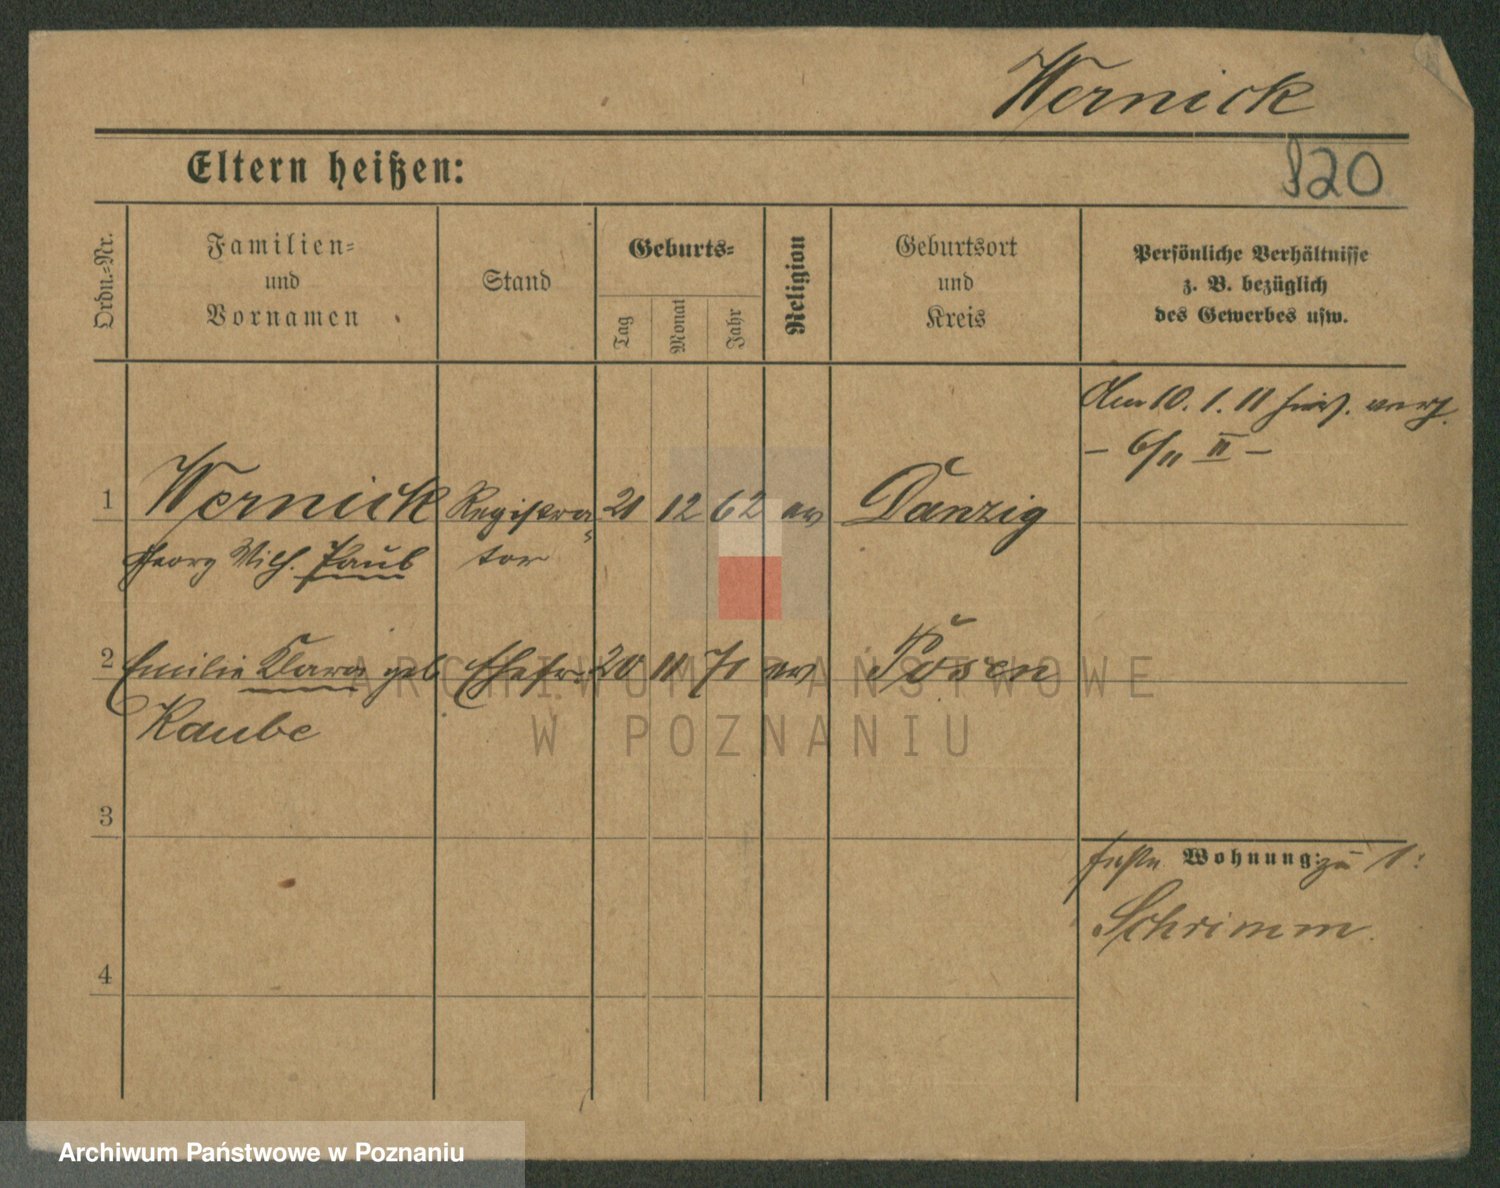 Wernick
Eltern heißen:
820
Ordn.=Nr.
Familien=
und
Vornamen
Stand
Geburts=
Tag
Monat
Jahr
Religion
Geburtsort
und
Kreis
Persönliche Verhältnisse
z. B. bezüglich
des Gewerbes usw.
Am 10. 1. 11
– 6/11 II –
1 Wernick Registra= 21 12 62 ev Danzig
Georg Wilh. Paul tor
2 Emilie Klara geb Ehefr. 20 11 71 ev Posen
Raube
3
feste Wohnung: zu 1:
Schrimm.
4
ARCHIWUM PAŃSTWOWE
W POZNANIU
Archiwum Państwowe w Poznaniu